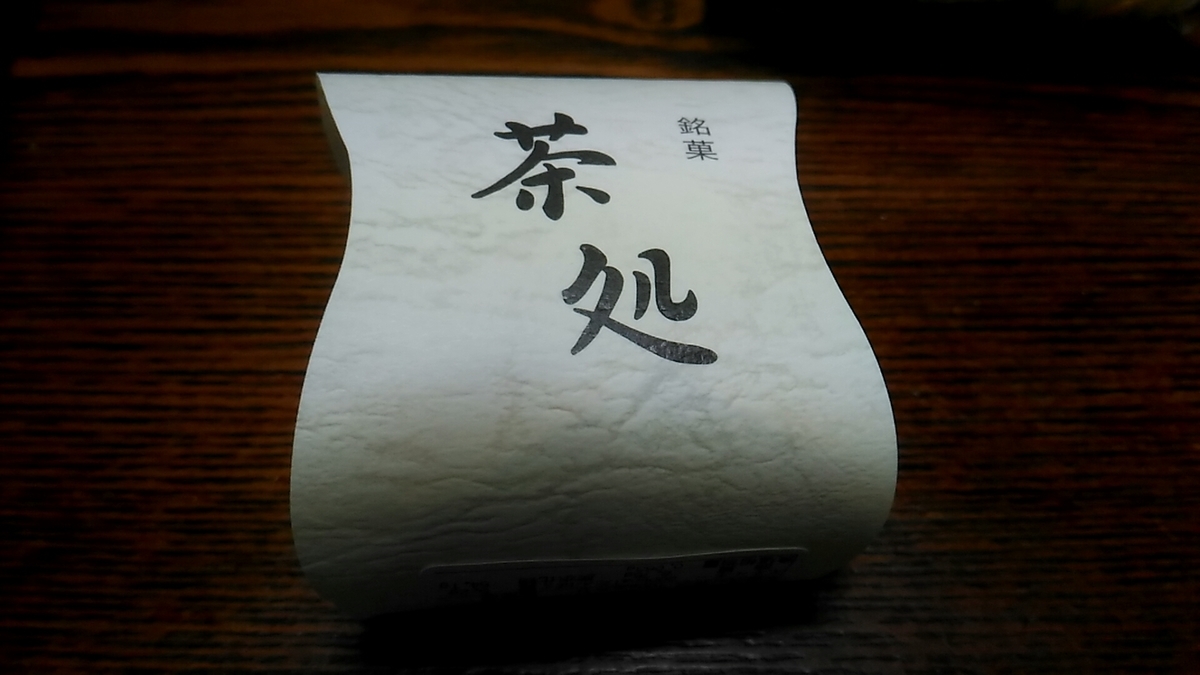 銘菓
茶処